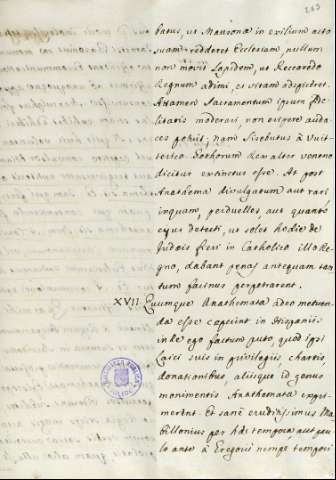 203
batus, ut Mausona in exilium acto
suam redderet Ecclesiam, nullum
non movit Lapidem, ut Reccaredo
Regnum adimi, et vitam
Attamen Sacramentum ipsum fi-
litatis moderari, non evexere auda
ces potuit, nam Sisebutus à Vuit-
terico Gothorum Rex alter veneno
dicitur extinctus esse. At post
Anathema divulgatum aut rari
inquam, perduelles, aut quantò
ejus detecti, ut solet hodie de
Judæis fieri in Catholico illo Re-
gno, dabant penas antequam tan
tum facinus perpetrarent.
XVII. Cumque Anathemata adeo metuen
da esse coeperint in Hispaniis
inde ego factum puto, quod ipsi
Laici suis in privilegiis chartis,
donationibus, aliisque id genus
monimentis Anathemata expri-
merent. Et sanè eruditissimus Ma-
billonius per hæc tempora, aut pau
lo ante à Gregorii nempe tempori